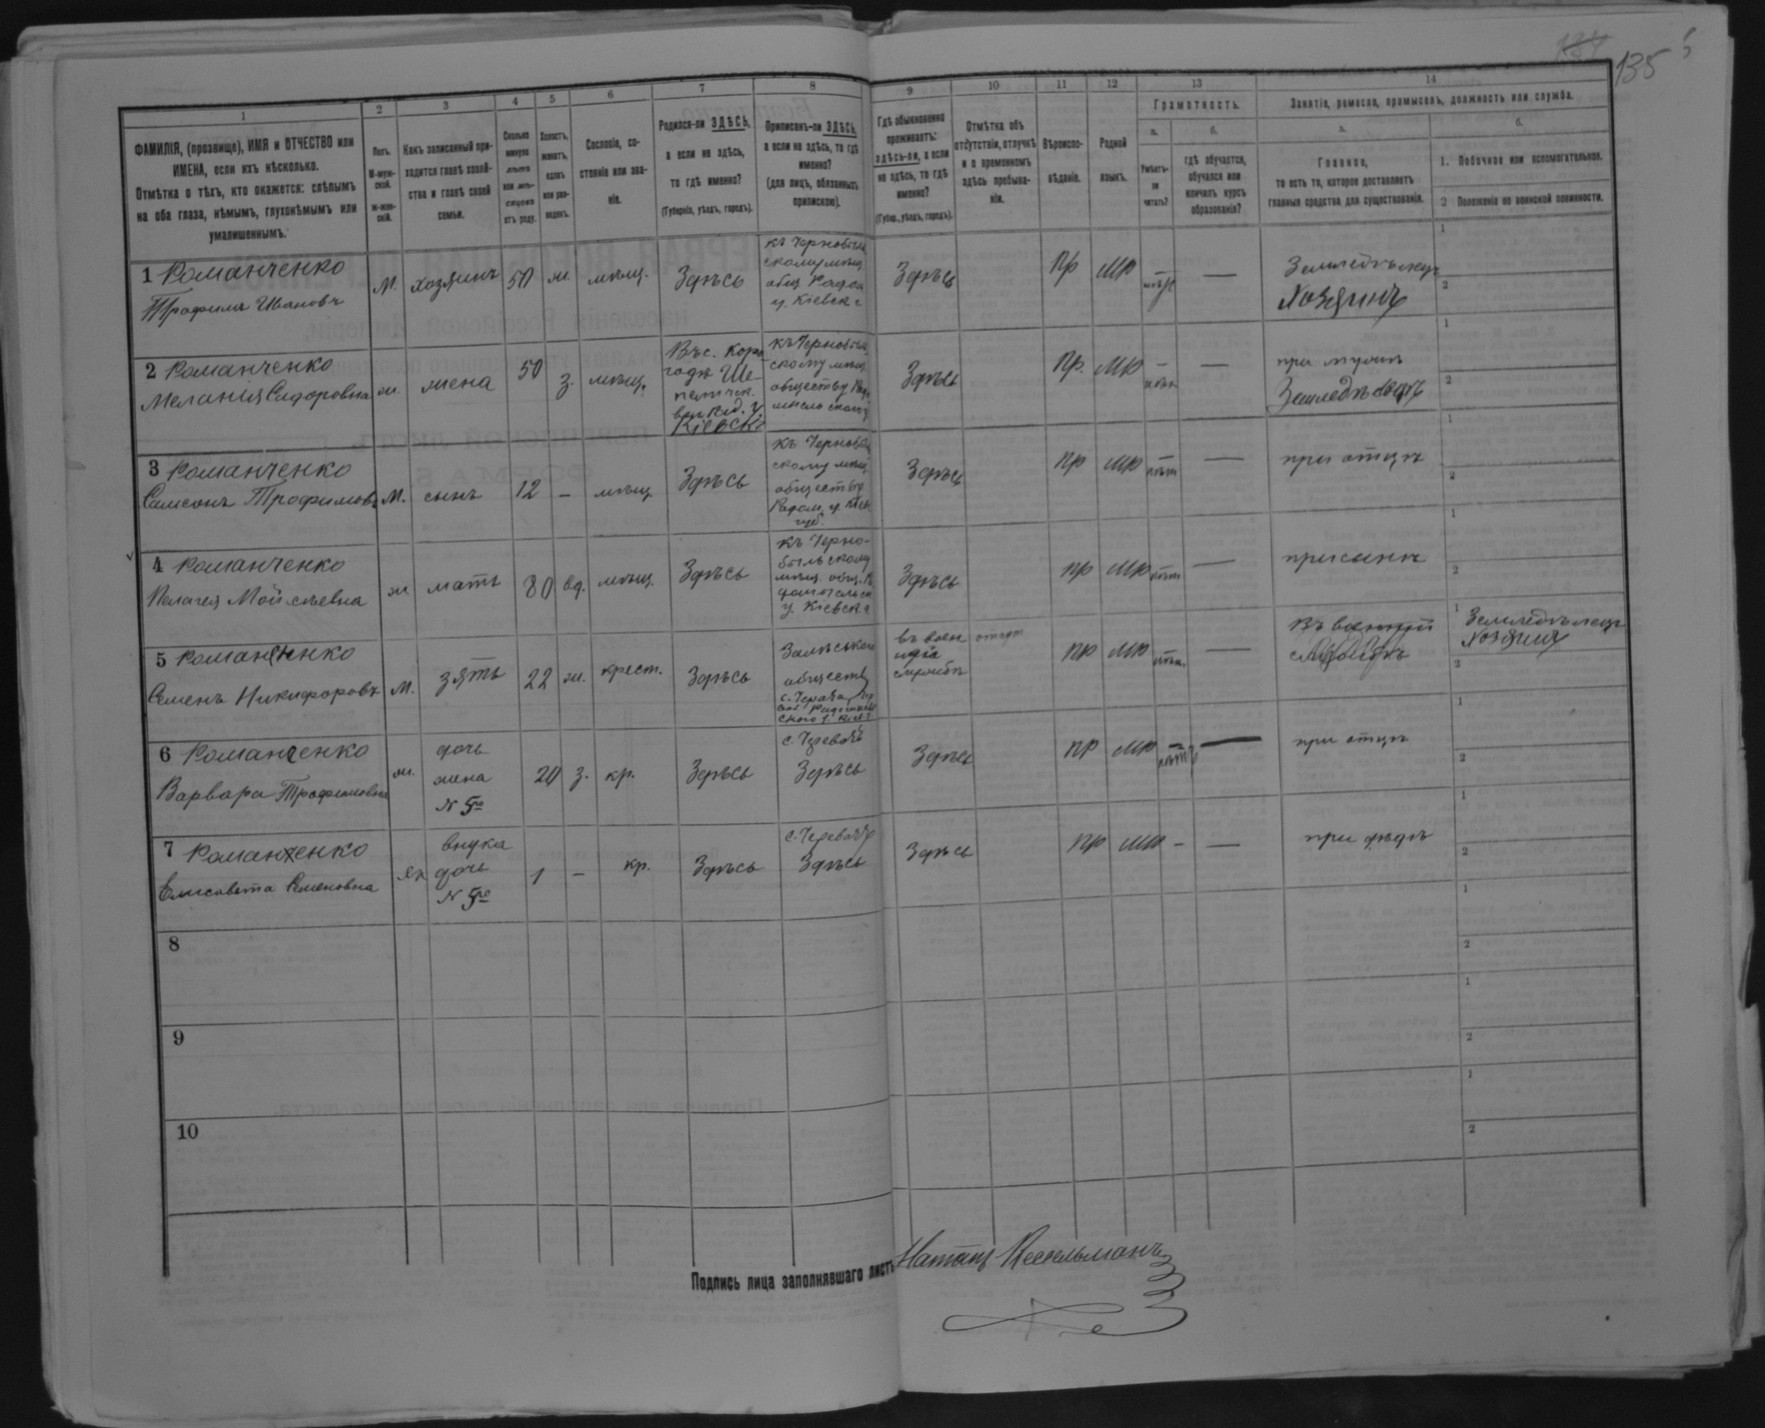 134
135
1
2
3
4
5
6
7
8
9
10
11
12
13
14
ФАМИЛІЯ, (прозвище), ИМЯ и ОТЧЕСТВО или
ИМЕНА, если ихъ нѣсколько.
Отмѣтка о тѣхъ, кто окажется: слѣпымъ
на оба глаза, нѣмымъ, глухонѣмымъ или
умалишеннымъ.
Полъ.
М-муж-
ской.
Ж-жен-
скій.
Какъ записанный при-
ходится главѣ хозяй-
ства и главѣ своей
семьи.
Сколько
минуло
лѣтъ
или мѣ-
сяцевъ
отъ роду.
Холостъ,
женатъ,
вдовъ
или раз-
веденъ.
Сословіе, со-
стояніе или зва-
ніе.
Родился-ли ЗДѢСЬ,
а если не здѣсь,
то гдѣ именно?
(Губернія, уѣздъ, городъ).
Приписанъ-ли ЗДѢСЬ,
а если не здѣсь, то гдѣ
именно?
(для лицъ, обязанныхъ
припискою).
Гдѣ обыкновенно
проживаетъ:
здѣсь-ли, а если
не здѣсь, то гдѣ
именно?
(Губер., уѣздъ, городъ).
Отмѣтка объ
отсутствіи, отлучкѣ
и о временномъ
здѣсь пребыва-
ніи.
Вѣроиспо-
вѣданіе.
Родной
языкъ.
Грамотность.
а.
Умѣетъ-
ли
читать?
б.
гдѣ обучается,
обучался или
кончилъ курсъ
образованія?
Занятіе, ремесло, промыселъ, должность или служба.
а.
Главное,
то есть то, которое доставляетъ
главныя средства для существованія.
б.
1. Побочное или вспомогательное.
2 Положеніе по воинской повинности.
1 Романченко
Трофимъ Ивановъ
М.
хозяинъ
50
ж.
мѣщ.
Здѣсь
Здѣсь
Пр
Мр
—
Земледѣлецъ
Хозяинъ
1
2
2 Романченко
Меланія Сидоровна
ж.
жена
50
з.
мѣщ.
Въ с. Коро-
годѣ Ше-
Кіевск.
Здѣсь
Пр.
Мр
—
при мужѣ
1
2
3 Романченко
Самсонъ Трофимовъ
М.
сынъ
12
—
мѣщ
Здѣсь
къ Чернобыл
скому мѣщ
обществу
Радом. у Кіев
губ.
Здѣсь
Пр
Мр
—
при отцѣ
1
2
4 Романченко
Пелагея Мойсѣевна
ж
мать
80
вд.
мѣщ.
Здѣсь
къ Черно-
быльскому
у. Кіевск г
Здѣсь
пр
Мр
—
при сынѣ
1
2
5 Романченко
Семенъ Никифоровъ
М.
зять
22
ж.
крест.
Здѣсь
обществ
въ воен
службѣ
пр
Мр
—
Земледѣлецъ
Хозяинъ
1
2
6 Романченко
Варвара Трофимовна
ж.
дочь
жена
N 5го
20
з.
кр.
Здѣсь
с. Черевачъ
Здѣсь
Здѣсь
пр
Мр
—
при отцѣ
1
2
7 Романченко
Елисавета Семеновна
ж
внука
дочь
N 5го
1
—
кр.
Здѣсь
с. Черевачъ
Здѣсь
Здѣсь
пр
Мр
—
—
при дѣдѣ
1
2
8
1
2
9
1
2
10
1
2
Подпись лица заполнявшаго листъ